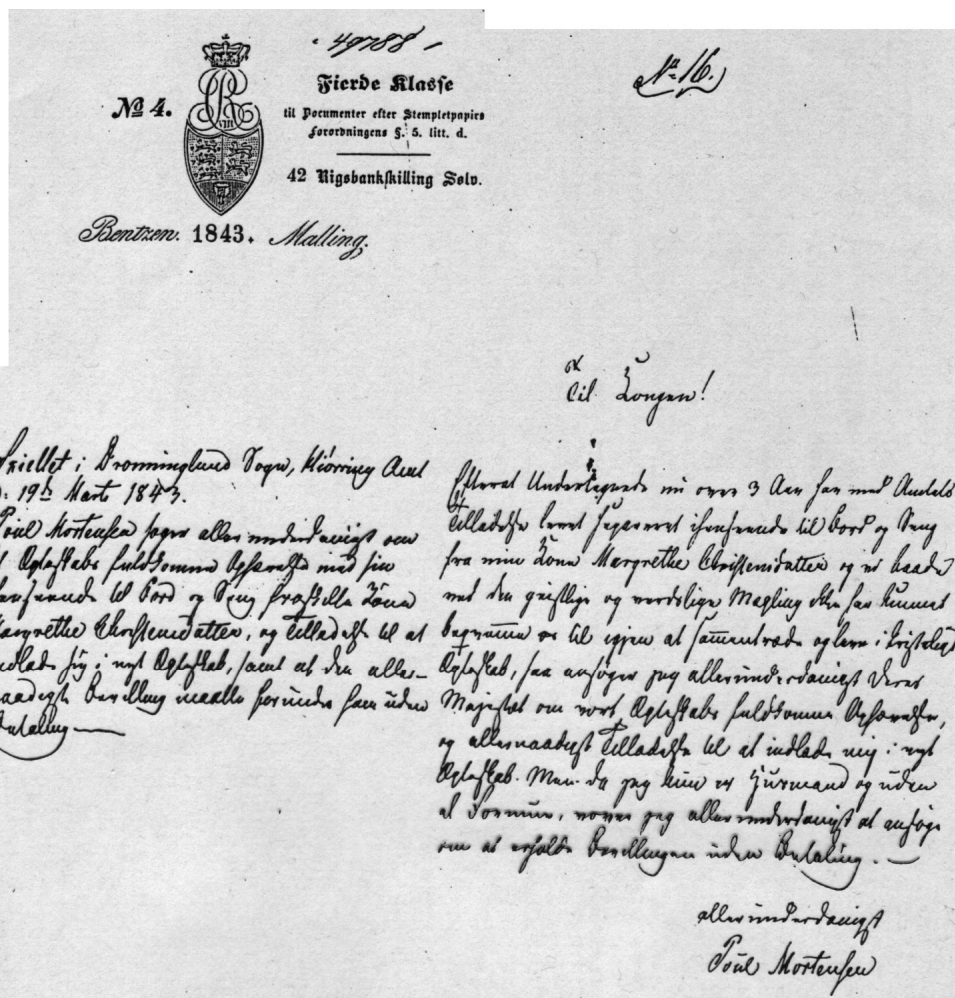 49788
№ 4.
Fierde Klasse
til Documenter efter Stempletpapirs
Forordningens §. 5. litt. d.
42 Rigsbankskilling Sølv.
Bentzen. 1843. Malling.
No 16.
Friellet i Dronninglund Sogn, Hiørring Amt
19de Marts 1843.
Poul Mortensen søger allerunderdanigst om
Ægteskabs fuldkomne Ophævelse med sin
henseende til Bord og Seng fraskilte Kone
Margrethe Christensdatter, og Tilladelse til at
indlade sig i nyt Ægteskab, samt at den aller-
naadigste Bevilling maatte forundes ham uden
Betaling
Til Kongen!
Efterat Undertegnede nu over 3 Aar har med Amtets
Tilladelse levet separeret i henseende til Bord og Seng
fra min Kone Margrethe Christensdatter og vi baade
ved den geistlige og verdslige Mægling ikke har kunnet
beqvemme os til igjen at sammentræde og leve i kristeligt
Ægteskab, saa ansøger jeg allerunderdanigst Deres
Majestæt om vort Ægteskabs fuldkomne Ophævelse,
og allernaadigst Tilladelse til at indlade mig i nyt
Ægteskab. Men da jeg kun er Huusmand og uden
al Formue, vover jeg allerunderdanigst at ansøge
om at erholde Bevillingen uden Betaling.
allerunderdanigst
Poul Mortensen